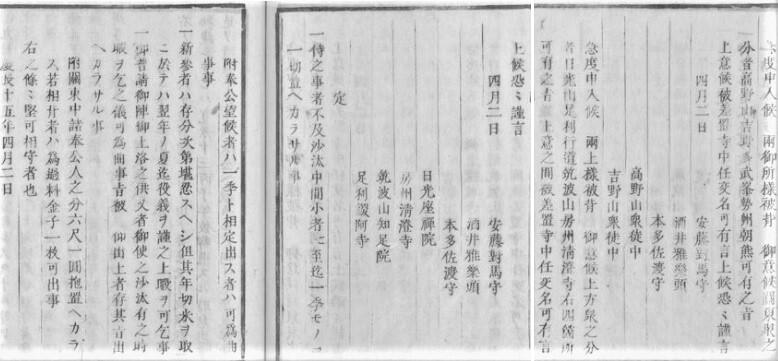 急度申入候 兩御所様被背 御意候關東衆之
分者高野山吉野多武峯勢州朝熊可有之旨
上意候被差置寺中任交名可有言上候恐〻謹言
四月二日
安藤對馬守
酒井雅樂頭
本多佐渡守
高野山衆徒中
吉野山衆徒中
急度申入候 兩上様被背 御意候上方衆之分
者日光山足利行道筑波山房州清澄寺右四箇所
可有之旨 上意之間被差置寺中任交名可有言
上候恐〻謹言
四月二日
安藤對馬守
酒井雅樂頭
本多佐渡守
日光座禪院
房州清澄寺
筑波山知足院
足利鑁阿寺
定
一侍之事者不及沙汰中間小者ニ至迄一季モノ一
切置ヘカラサル事
附奉公望候者ハ一季ト相定出ス者ハ可爲曲
事事
一新参者ハ存分次第堪忍スヘシ但其年切米ヲ取
ニ於テハ翌年ノ夏迄役義ヲ謹之上暇ヲ可乞事
一御普請御陣御上洛之供又者御使之沙汰有之時
暇ヲ乞之儀可爲曲事吉被 仰出上者存其旨出
ヘカラサル事
附關東中諸奉公人之分六尺一圓抱置ヘカラ
ス若相背者ハ爲過料金子一枚可出事
右之條〻堅可相守者也
慶長十五年四月二日